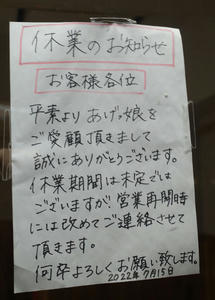 休業のお知らせ
お客様各位
平素よりあげっ娘を
ご愛顧頂きまして
誠にありがとうございます。
休業期間は未定では
ございますが営業再開時
には改めてご連絡させて
頂きます。
何卒よろしくお願い致します。
2022年7月15日